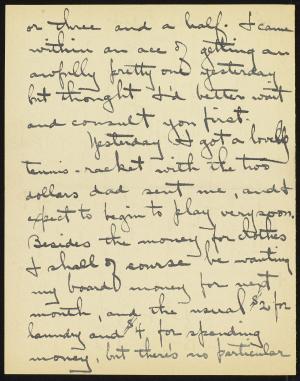 or three and a half. I came
within an ace of getting an
awfully pretty one yesterday
but thought I'd better wait
and consult you first.
Yesterday I got a lovely
tennis-racket with the two
dollars dad sent me, and I
expect to begin to play very soon.
Besides the money for clothes
I shall of course be wanting
my board money for next
month, and the usual $2 for
laundry and $4 for spending
money, but there's no particular